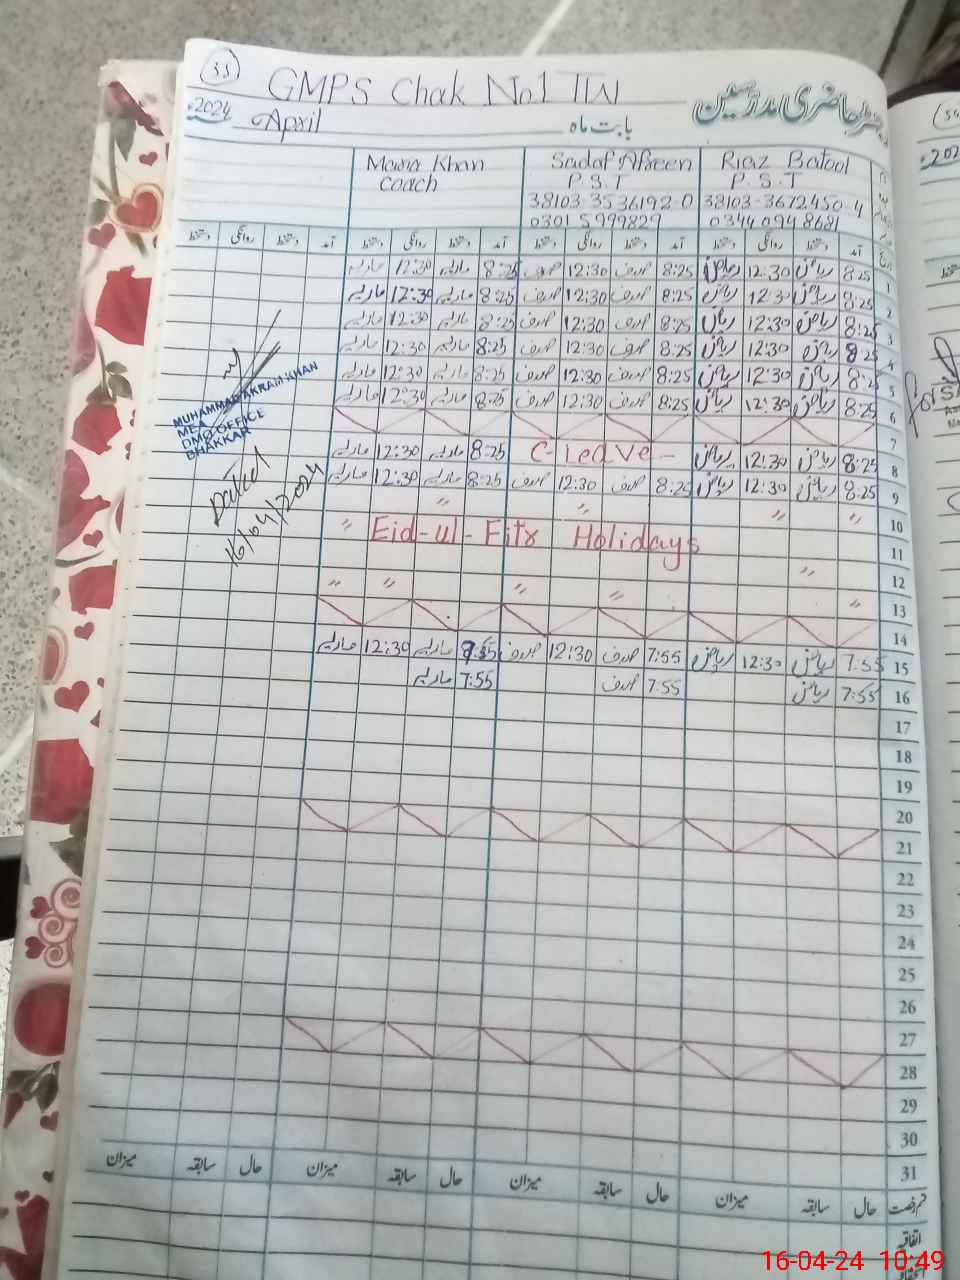 35
GMPS Chak No1 TW
رجسٹر حاضری مدرسین
2024 April
بابت ماہ
Mawra Khan Sadaf Afreen Riaz Batool
Coach P.S.T P.S.T
38103-3536192-0 38103-3672450-4
0301 5999829 0344 094 8681
دستخط روانگی دستخط آمد دستخط روانگی دستخط آمد دستخط روانگی دستخط آمد دستخط روانگی دستخط آمد
1 8:25 ریاض 12:30 ریاض 8:25 صدف 12:30 صدف 8:25 ماریہ 12:30 ماریہ
2 8:25 ریاض 12:30 ریاض 8:25 صدف 12:30 صدف 8:25 ماریہ 12:30 ماریہ
3 8:25 ریاض 12:30 ریاض 8:25 صدف 12:30 صدف 8:25 ماریہ 12:30 ماریہ
4 8:25 ریاض 12:30 ریاض 8:25 صدف 12:30 صدف 8:25 ماریہ 12:30 ماریہ
5 8:25 ریاض 12:30 ریاض 8:25 صدف 12:30 صدف 8:25 ماریہ 12:30 ماریہ
6 8:25 ریاض 12:30 ریاض 8:25 صدف 12:30 صدف 8:25 ماریہ 12:30 ماریہ
7
8 8:25 ریاض 12:30 ریاض C-Leave - 8:25 ماریہ 12:30 ماریہ
9 8:25 ریاض 12:30 ریاض 8:25 صدف 12:30 صدف 8:25 ماریہ 12:30 ماریہ
10 " " " "
11 " Eid-ul-Fitr Holidays
12 "
13 " " " " "
14
15 7:55 ریاض 12:30 ریاض 7:55 صدف 12:30 صدف 7:55 ماریہ 12:30 ماریہ
16 7:55 ریاض 7:55 صدف 7:55 ماریہ
17
18
19
20
21
22
23
24
25
26
27
28
29
30
31
میزان سابقہ حال میزان سابقہ حال میزان سابقہ حال میزان سابقہ حال قسم رخصت
اتفاقیہ
MUHAMMAD AKRAM KHAN
MEA
DMO OFFICE
BHAKKAR
Dated
16/04/2024
16-04-24 10:49